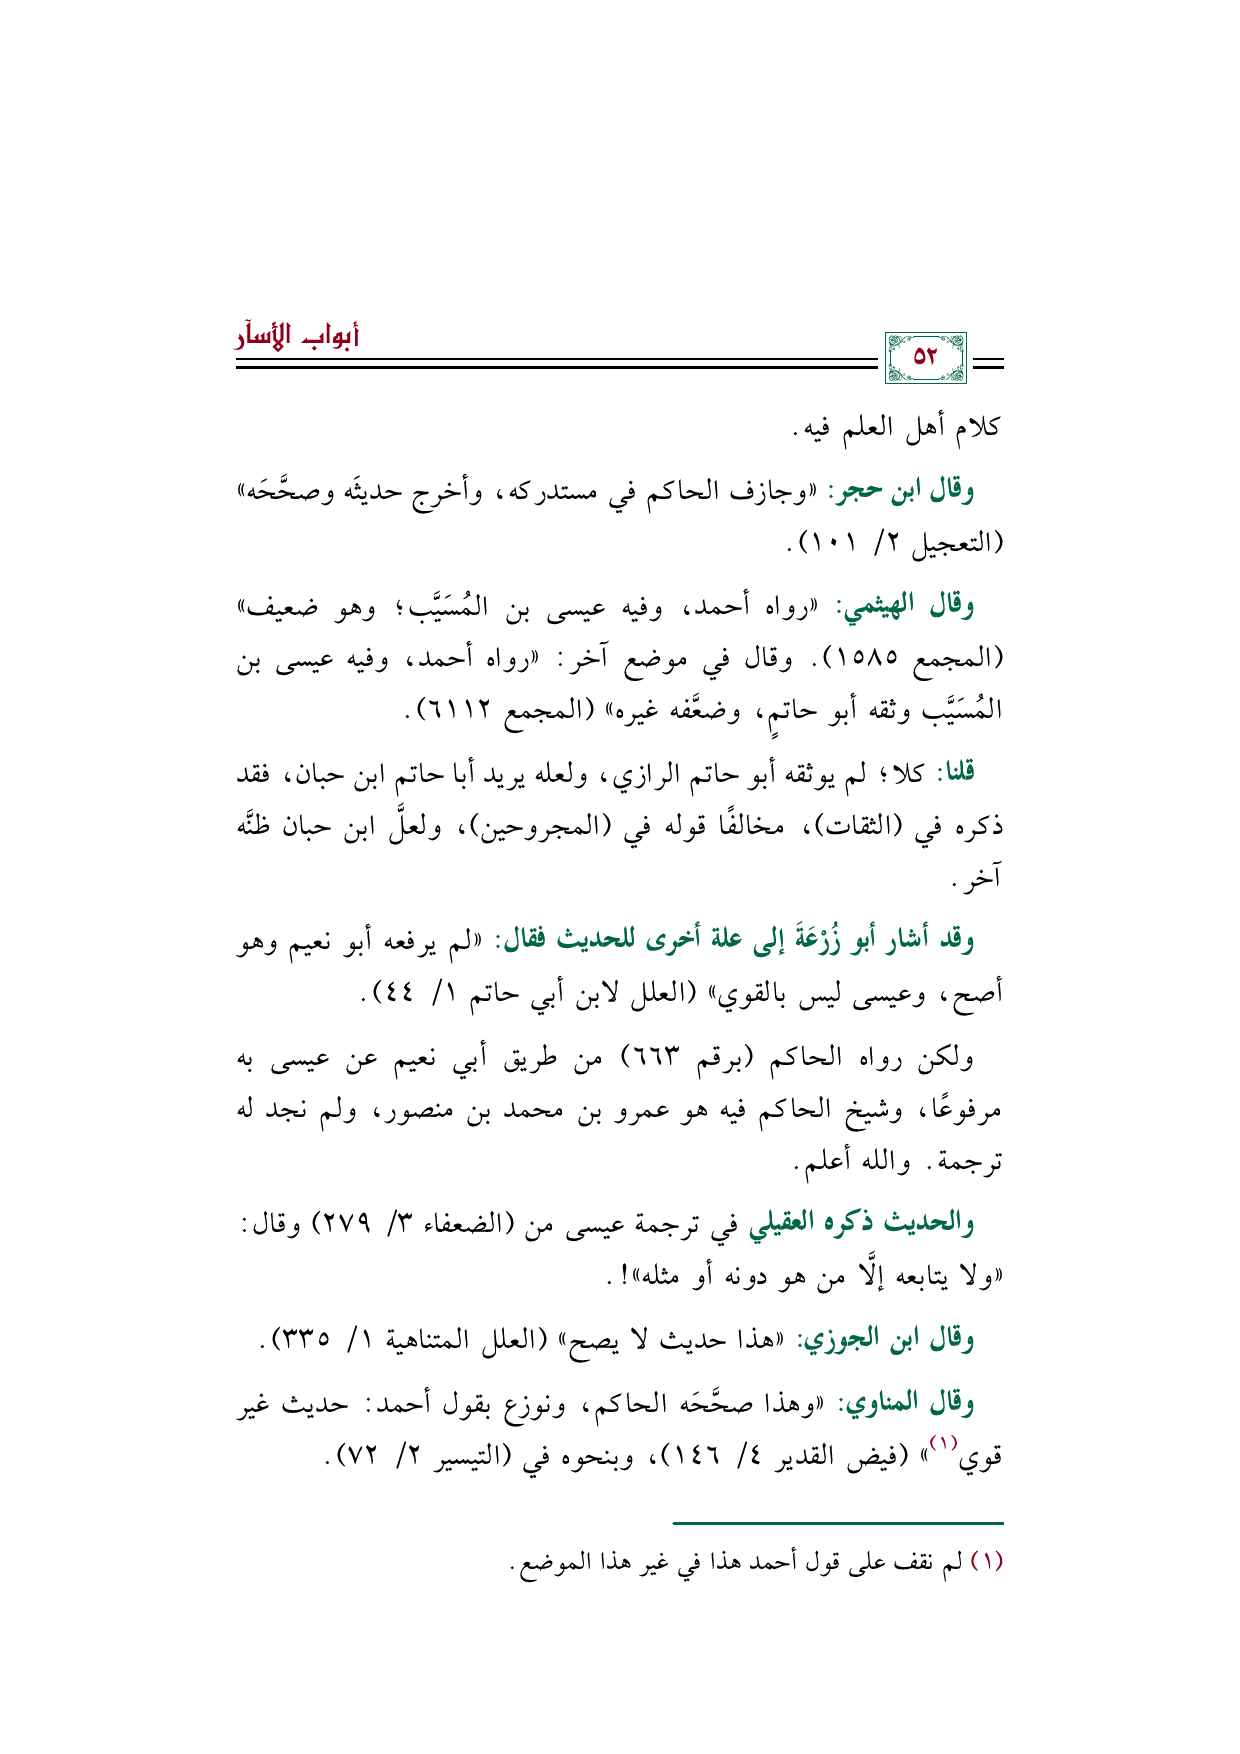 أبواب الأسآر
٥٢
كلام أهل العلم فيه.
وقال ابن حجر: «وجازف الحاكم في مستدركه، وأخرج حديثَه وصحَّحَه»
(التعجيل ٢/ ١٠١).
وقال الهيثمي: «رواه أحمد، وفيه عيسى بن المُسَيَّب؛ وهو ضعيف»
(المجمع ١٥٨٥). وقال في موضع آخر: «رواه أحمد، وفيه عيسى بن
المُسَيَّب وثقه أبو حاتمٍ، وضعَّفه غيره» (المجمع ٦١١٢).
قلنا: كلا؛ لم يوثقه أبو حاتم الرازي، ولعله يريد أبا حاتم ابن حبان، فقد
ذكره في (الثقات)، مخالفًا قوله في (المجروحين)، ولعلَّ ابن حبان ظنَّه
آخر.
وقد أشار أبو زُرْعَةَ إلى علة أخرى للحديث فقال: «لم يرفعه أبو نعيم وهو
أصح، وعيسى ليس بالقوي» (العلل لابن أبي حاتم ١/ ٤٤).
ولكن رواه الحاكم (برقم ٦٦٣) من طريق أبي نعيم عن عيسى به
مرفوعًا، وشيخ الحاكم فيه هو عمرو بن محمد بن منصور، ولم نجد له
ترجمة. والله أعلم.
والحديث ذكره العقيلي في ترجمة عيسى من (الضعفاء ٣/ ٢٧٩) وقال:
«ولا يتابعه إلَّا من هو دونه أو مثله»!.
وقال ابن الجوزي: «هذا حديث لا يصح» (العلل المتناهية ١/ ٣٣٥).
وقال المناوي: «وهذا صحَّحَه الحاكم، ونوزع بقول أحمد: حديث غير
قوي(١)» (فيض القدير ٤/ ١٤٦)، وبنحوه في (التيسير ٢/ ٧٢).
(١) لم نقف على قول أحمد هذا في غير هذا الموضع.